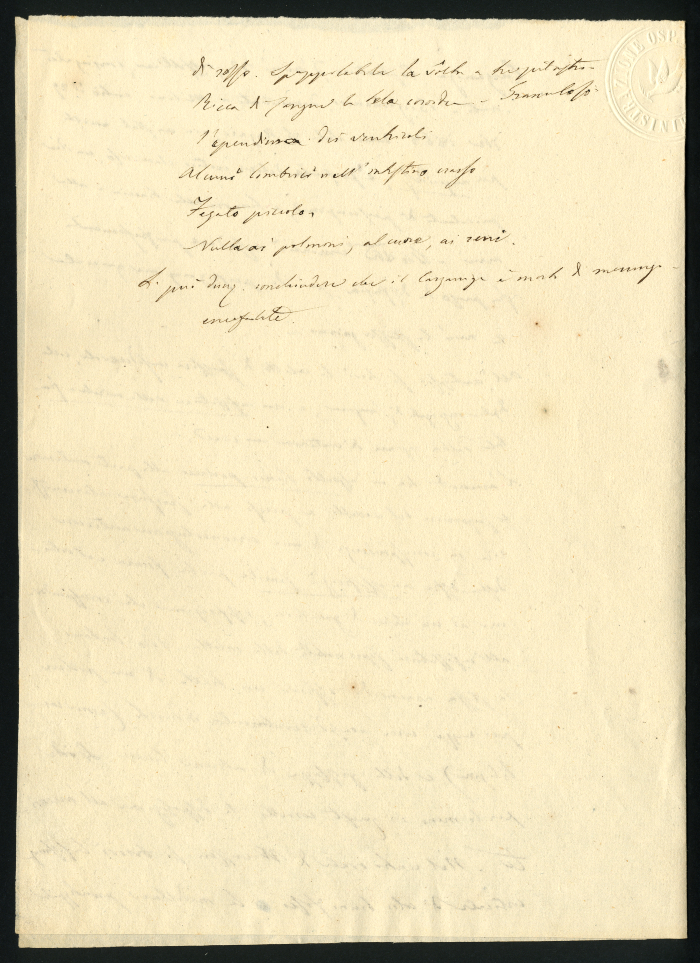 di rosso. Spappolabile la volta a tre pilastri.
Ricca di sangue la tela coroidea - Granuloso
l'ependima dei ventricoli
Alcuni lombrici nell'intestino crasso
Fegato piccolo,
Nulla ai polmoni, al cuore, ai reni.
Si può dunq. conchiudere che il è morto di meningo-
encefalite.
MINISTRAZIONE OSP